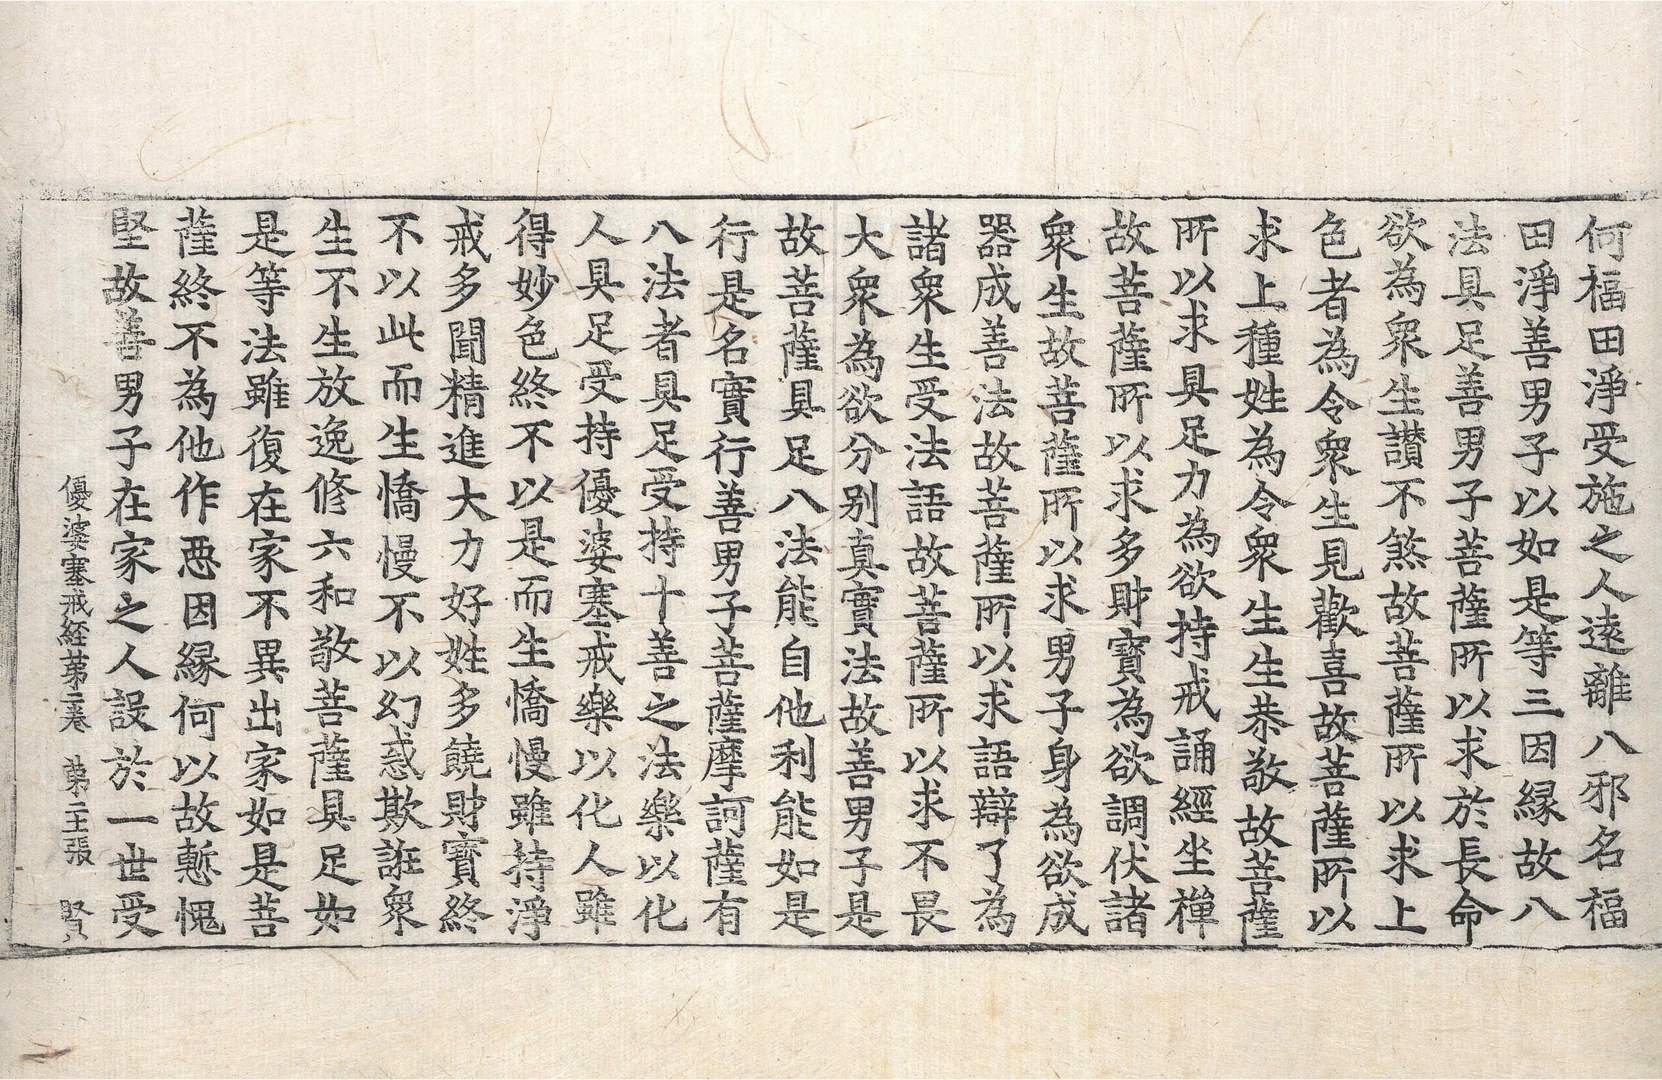 何福田淨受施之人遠離八邪名福
田淨善男子以如是等三因縁故八
法具足善男子菩薩所以求於長命
欲為衆生讃不煞故菩薩所以求上
色者為令衆生見歡喜故菩薩所以
求上種姓為令衆生生恭敬故菩薩
所以求具足力為欲持戒誦經坐禪
故菩薩所以求多財寶為欲調伏諸
衆生故菩薩所以求男子身為欲成
器成善法故菩薩所以求語辯了為
諸衆生受法語故菩薩所以求不畏
大衆為欲分別真實法故善男子是
故菩薩具足八法能自他利能如是
行是名實行善男子菩薩摩訶薩有
八法者具足受持十善之法樂以化
人具足受持優婆塞戒樂以化人雖
得妙色終不以是而生憍慢雖持淨
戒多聞精進大力好姓多饒財寶終
不以此而生憍慢不以幻惑欺誑衆
生不生放逸修六和敬菩薩具足如
是等法雖復在家不異出家如是菩
薩終不為他作惡因縁何以故慙愧
堅故善男子在家之人設於一世受
優婆塞戒經第二卷 第二主張 賢